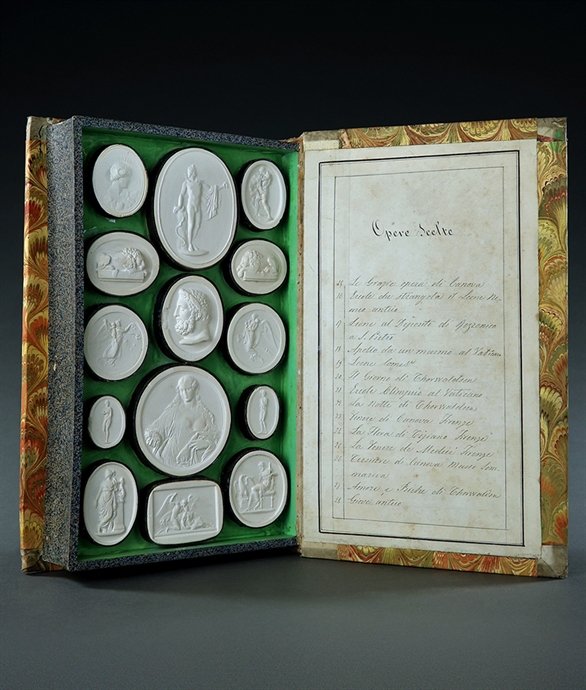 Opere Scelte
Le Grazie opera di Canova
Ercole che strangola il Leone Ne-
meo antico
17 Leone al Deposito di Rezzonico
a S. Pietro
18 Apollo da un marmo al Vaticano
19 Leone
Il Giorno di Thorwaldsen
Ercole Olimpico al Vaticano
La Notte di Thorwaldsen
Venere di Canova Firenze
La Flora di Tiziano Firenze
La Venere de Medici Firenze
Museo
27 Amore e di Thorwaldsen
28 antico